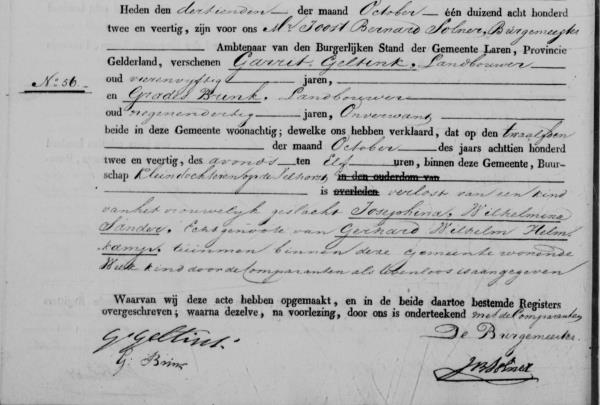 Heden den dertienden der maand October één duizend acht honderd
twee en veertig, zijn voor ons Mr Joost Bernard Solner, Burgemeester
Ambtenaar van den Burgerlijken Stand der Gemeente Laren, Provincie
Gelderland, verschenen Garrit Geltink, Landbouwer
No. 56
oud vierenvyftig jaren,
en Grades Brink, Landbouwer
oud negenendertig jaren, Onverwant
beide in deze Gemeente woonachtig; dewelke ons hebben verklaard, dat op den twaalfden
der maand October des jaars achttien honderd
twee en veertig, des avonds ten Elf uren, binnen deze Gemeente, Buur-
schap Klein Dochteren op de in den ouderdom van
is overleden verlost van een kind
van het vrouwelyk geslacht Josephina, Wilhelmina
Sander, Echtgenoote van Gerhard Wilhelm Helms
kamp, binnen deze Gemeente wonende
Welk kind door de Comparanten als levenloos is aangegeven
Waarvan wij deze acte hebben opgemaakt, en in de beide daartoe bestemde Registers
overgeschreven; waarna dezelve, na voorlezing, door ons is onderteekend met de Comparanten
G. Geltink.
De Burgemeester
G. Brink
JBSolner